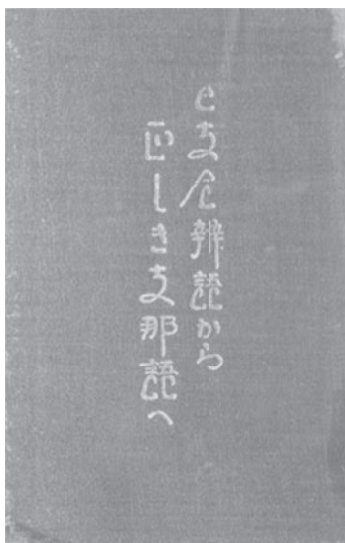 日支合辨語から
正しき支那語へ